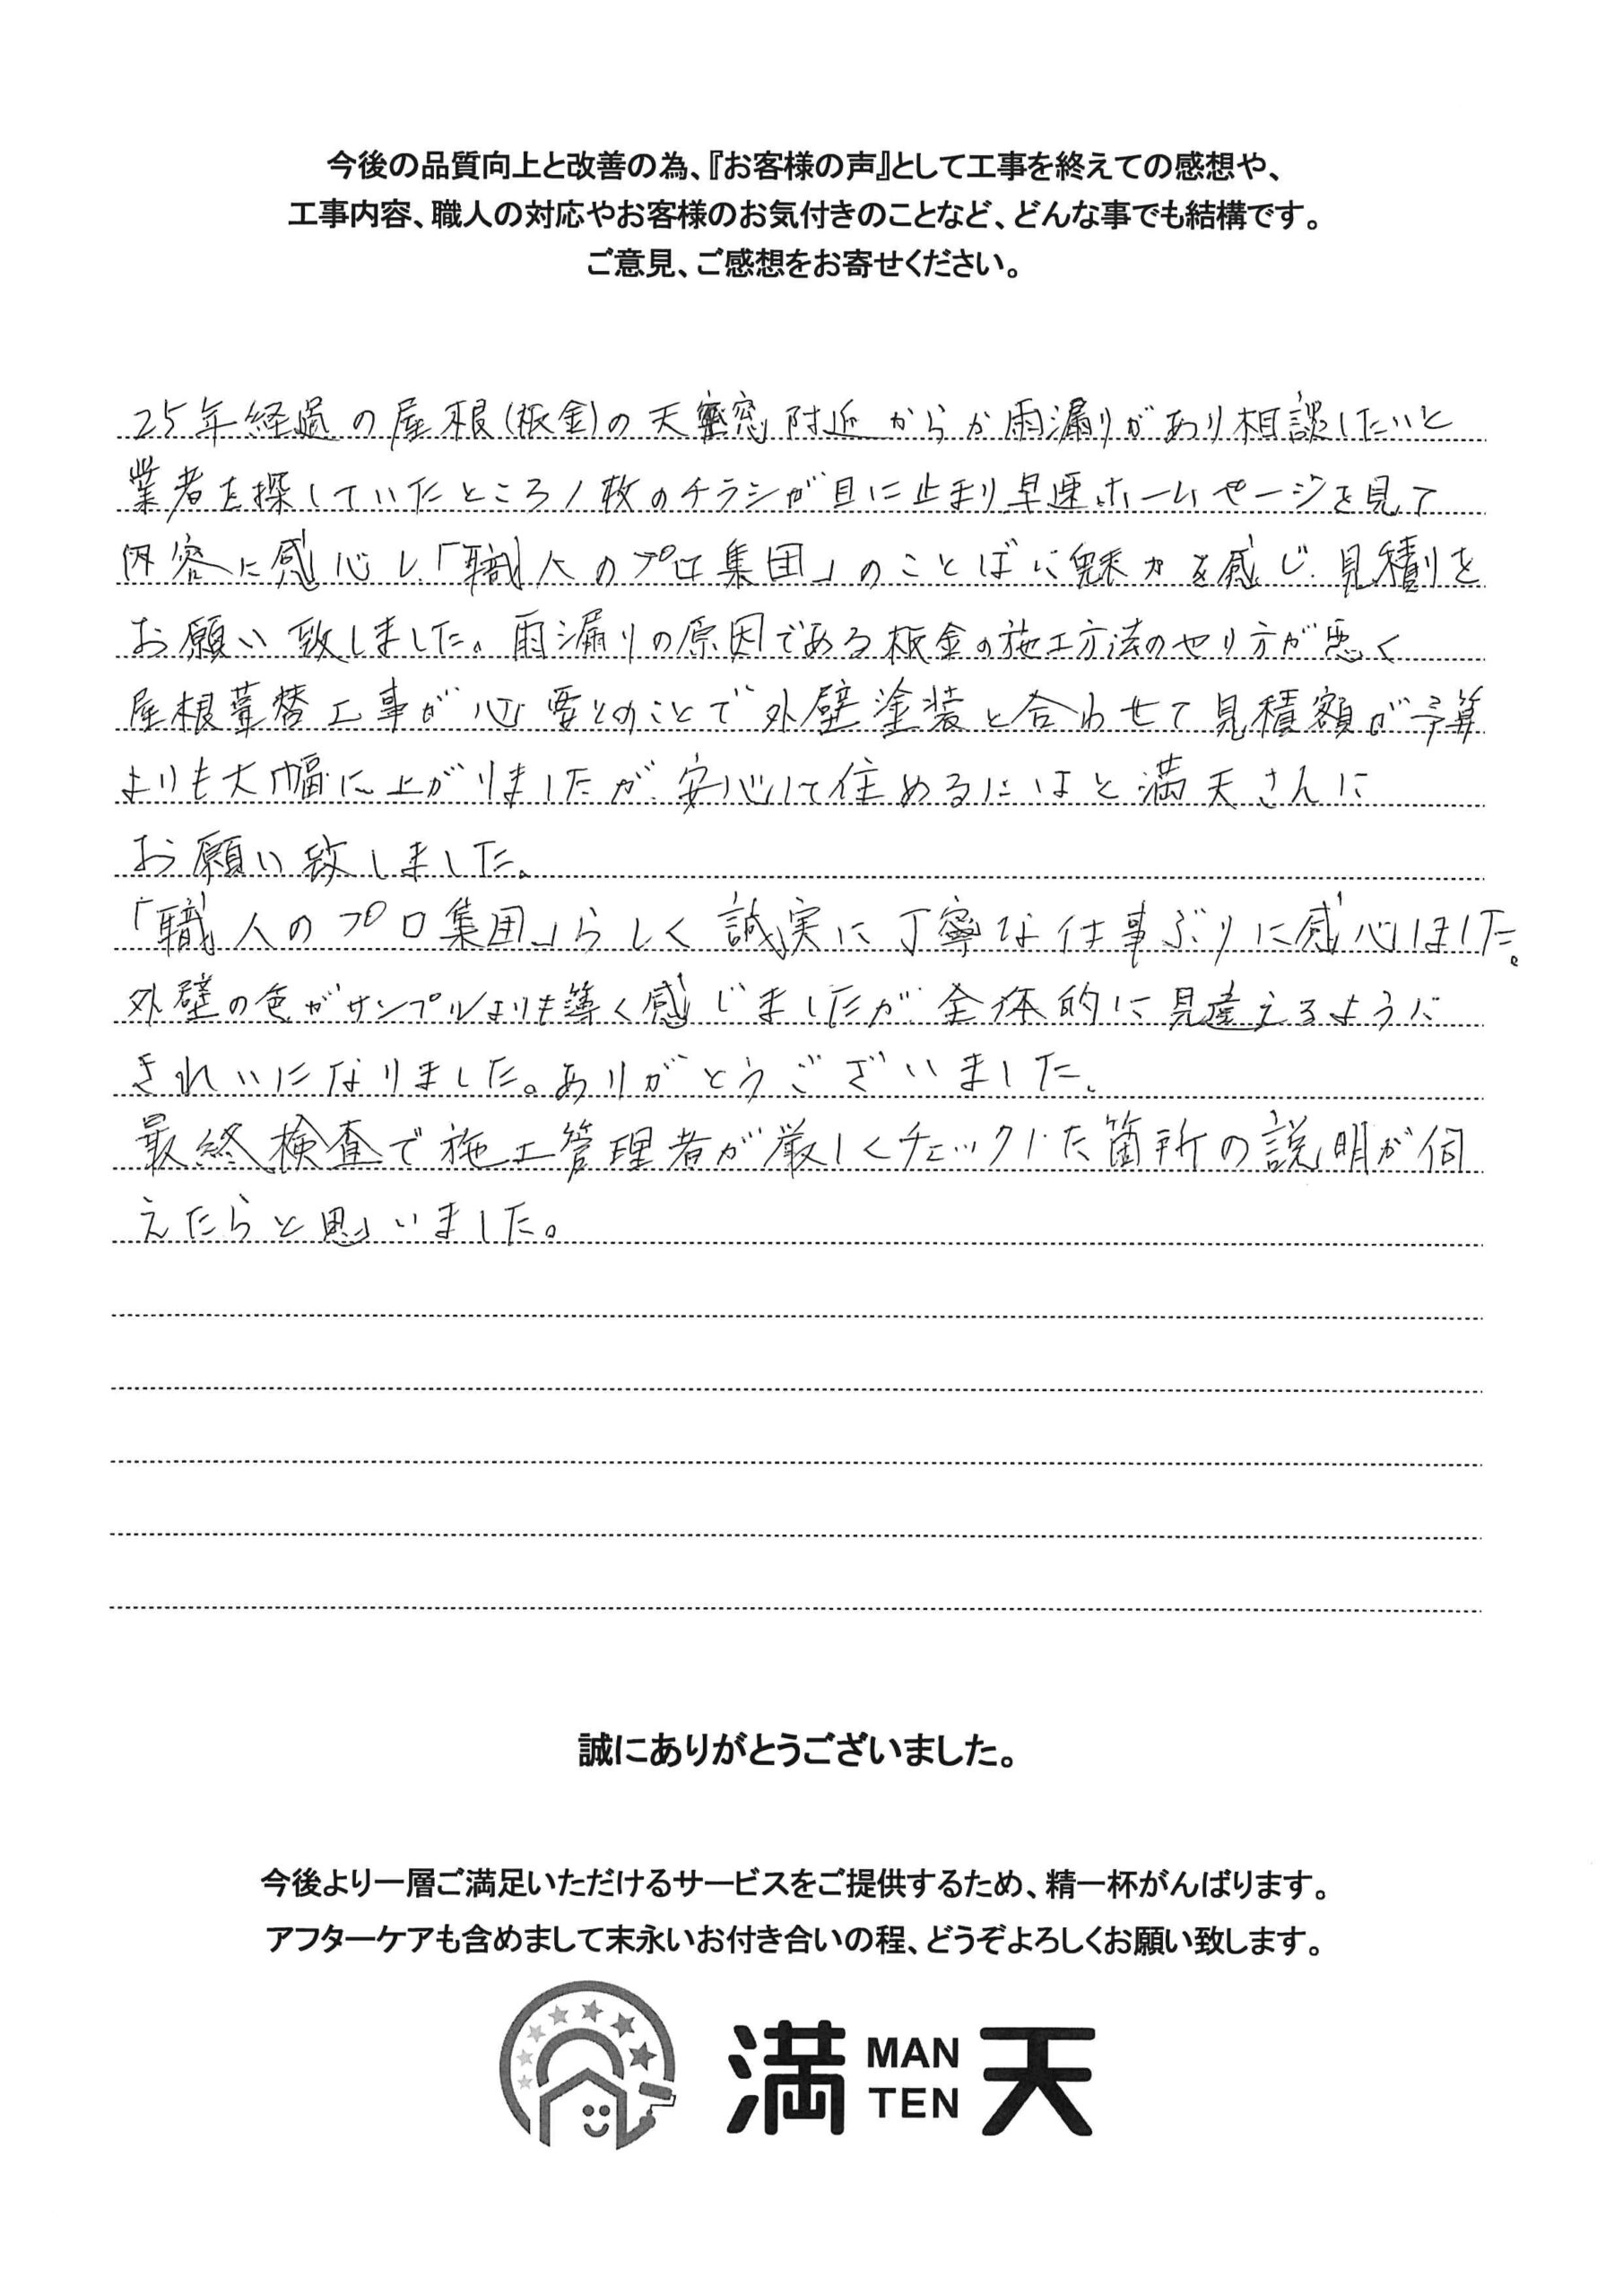 今後の品質向上と改善の為、『お客様の声』として工事を終えての感想や、
工事内容、職人の対応やお客様のお気付きのことなど、どんな事でも結構です。
ご意見、ご感想をお寄せください。
25年経過の屋根(板金)の天窓附近からか雨漏りがあり相談したいと
業者を探していたところ1枚のチラシが目に止まり早速ホームページを見て
内容に感心し「職人のプロ集団」のことばに魅力を感じ見積りを
お願い致しました。雨漏りの原因である板金の施工方法のやり方が悪く
屋根葺替工事が心要とのことで外壁塗装と合わせて見積額が予算
よりも大幅に上がりましたが、安心して住めるにはと満天さんに
お願い致しました。
「職人のプロ集団」らしく誠実に丁寧な仕事ぶりに感心しました。
外壁の色がサンプルよりも薄く感じましたが、全体的に見違えるように
きれいになりました。ありがとうございました。
最終検査で施工管理者が厳しくチェックした箇所の説明が伺
えたらと思いました。
誠にありがとうございました。
今後より一層ご満足いただけるサービスをご提供するため、精一杯がんばります。
アフターケアも含めまして末永いお付き合いの程、どうぞよろしくお願い致します。
満 MAN TEN 天